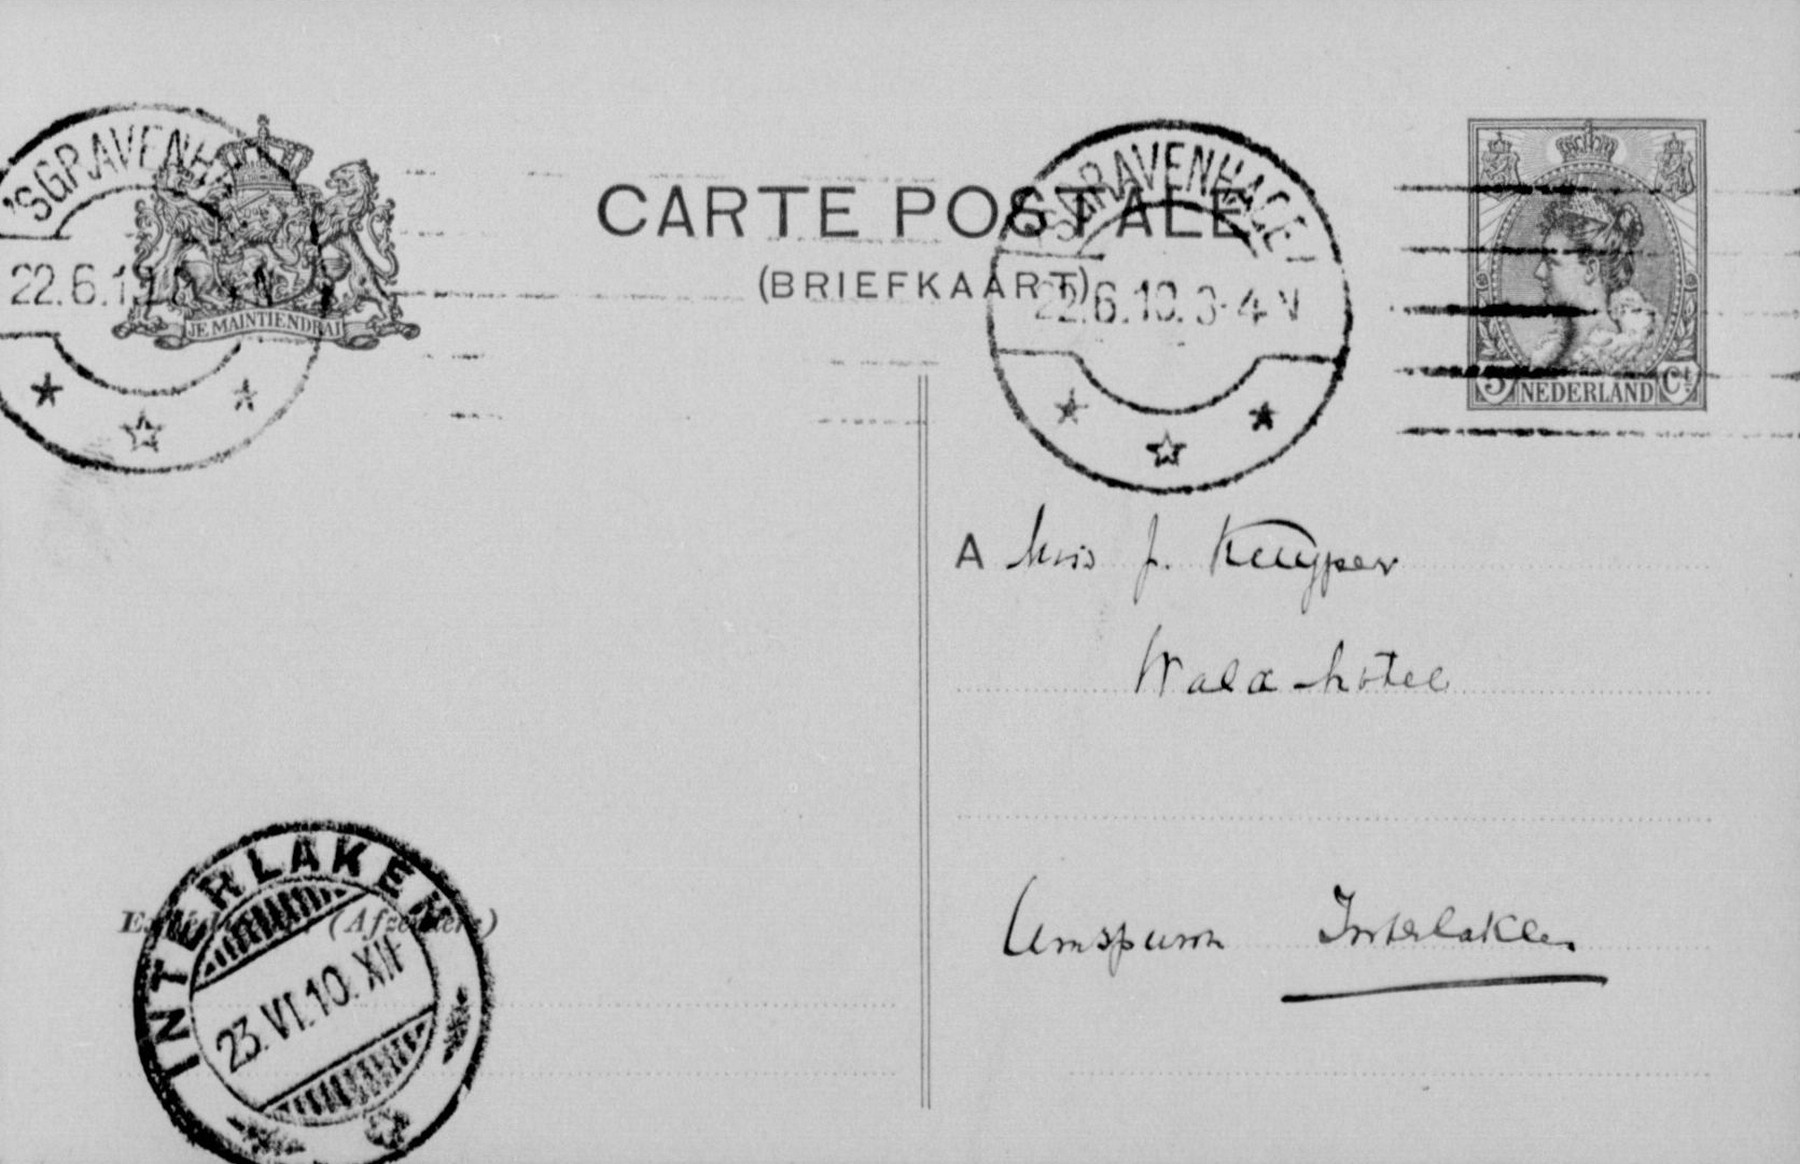 'SGRAVENH
22.6.10
JE MAINTIENDRAI
CARTE POSTALE
(BRIEFKAART)
'SGRAVENHAGE 1
22.6.10. 3-4 N
5 NEDERLAND Ct
A Miss J. Kuyper
Wald-hotel
Interlaken
(Afzender)
INTERLAKEN
23.VI.10. XII